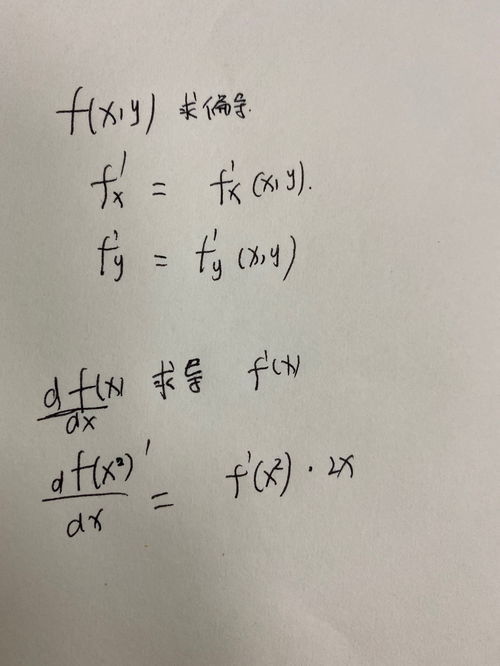 f(x,y) 求偏导.
f'x = f'x (x,y).
f'y = f'y (x,y)
d f(x)/dx 求导 f'(x)
d f(x²)'/dx = f'(x²) · 2x